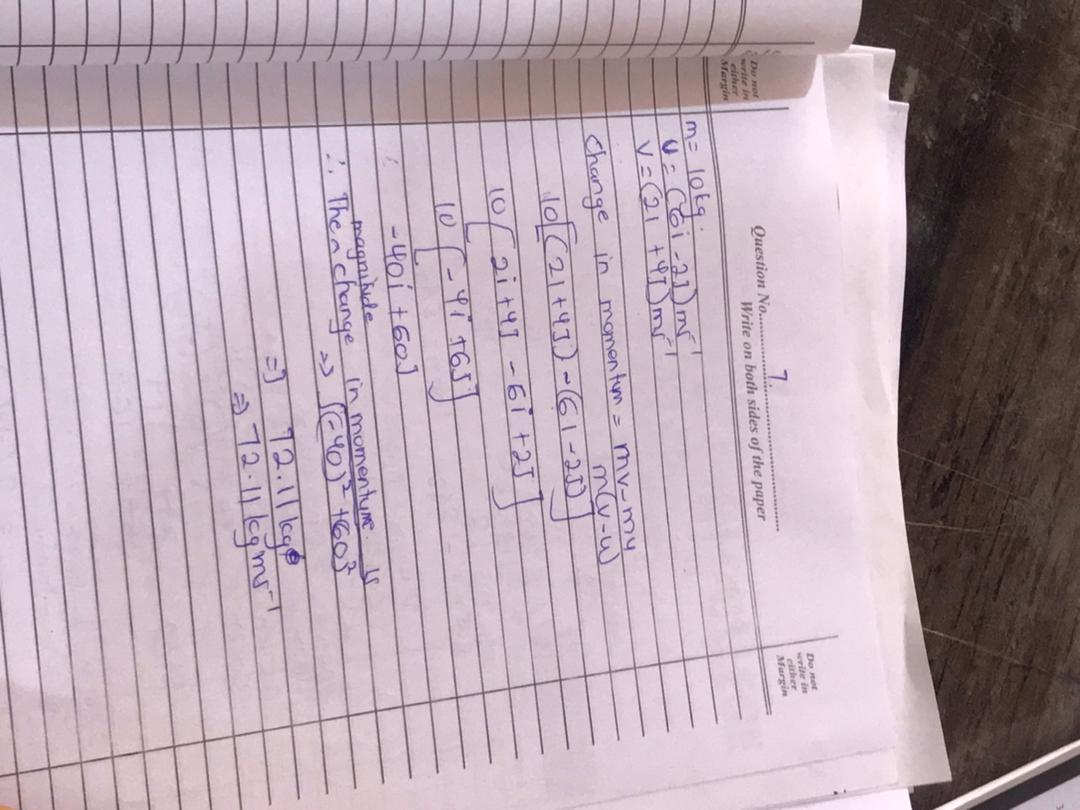 Do not
write in
either
Margin
Question No. 7.
Write on both sides of the paper
Do not
write in
either
Margin
m = 10kg
u = (6i - 2J)ms⁻¹
v = (2i + 4J)ms⁻¹
Change in momentum = mv - mu
m(v-u)
10[(2i+4J) - (6i - 2J)]
10[2i+4J - 6i + 2J]
10[-4i + 6J]
-40i + 60J
magnitude
∴ The change in momentum is
⇒ √(-40)² + 60²
⇒ 72.11kg
⇒ 72.11kgms⁻¹